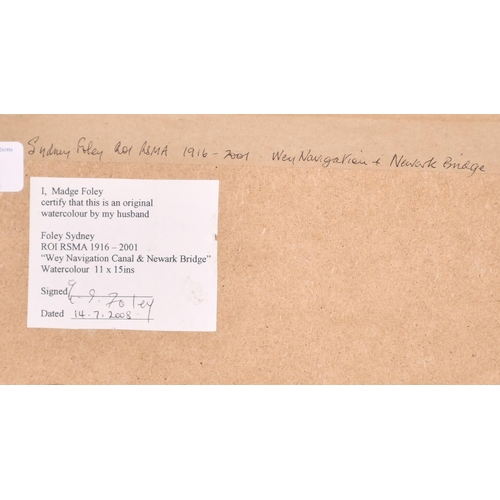 Sydney Foley ROI RSMA 1916 - 2001 Wey Navigation & Newark Bridge
I, Madge Foley
certify that this is an original
watercolour by my husband
Foley Sydney
ROI RSMA 1916 – 2001
“Wey Navigation Canal & Newark Bridge”
Watercolour 11 x 15ins
Signed
Foley
Dated 14.7.2008